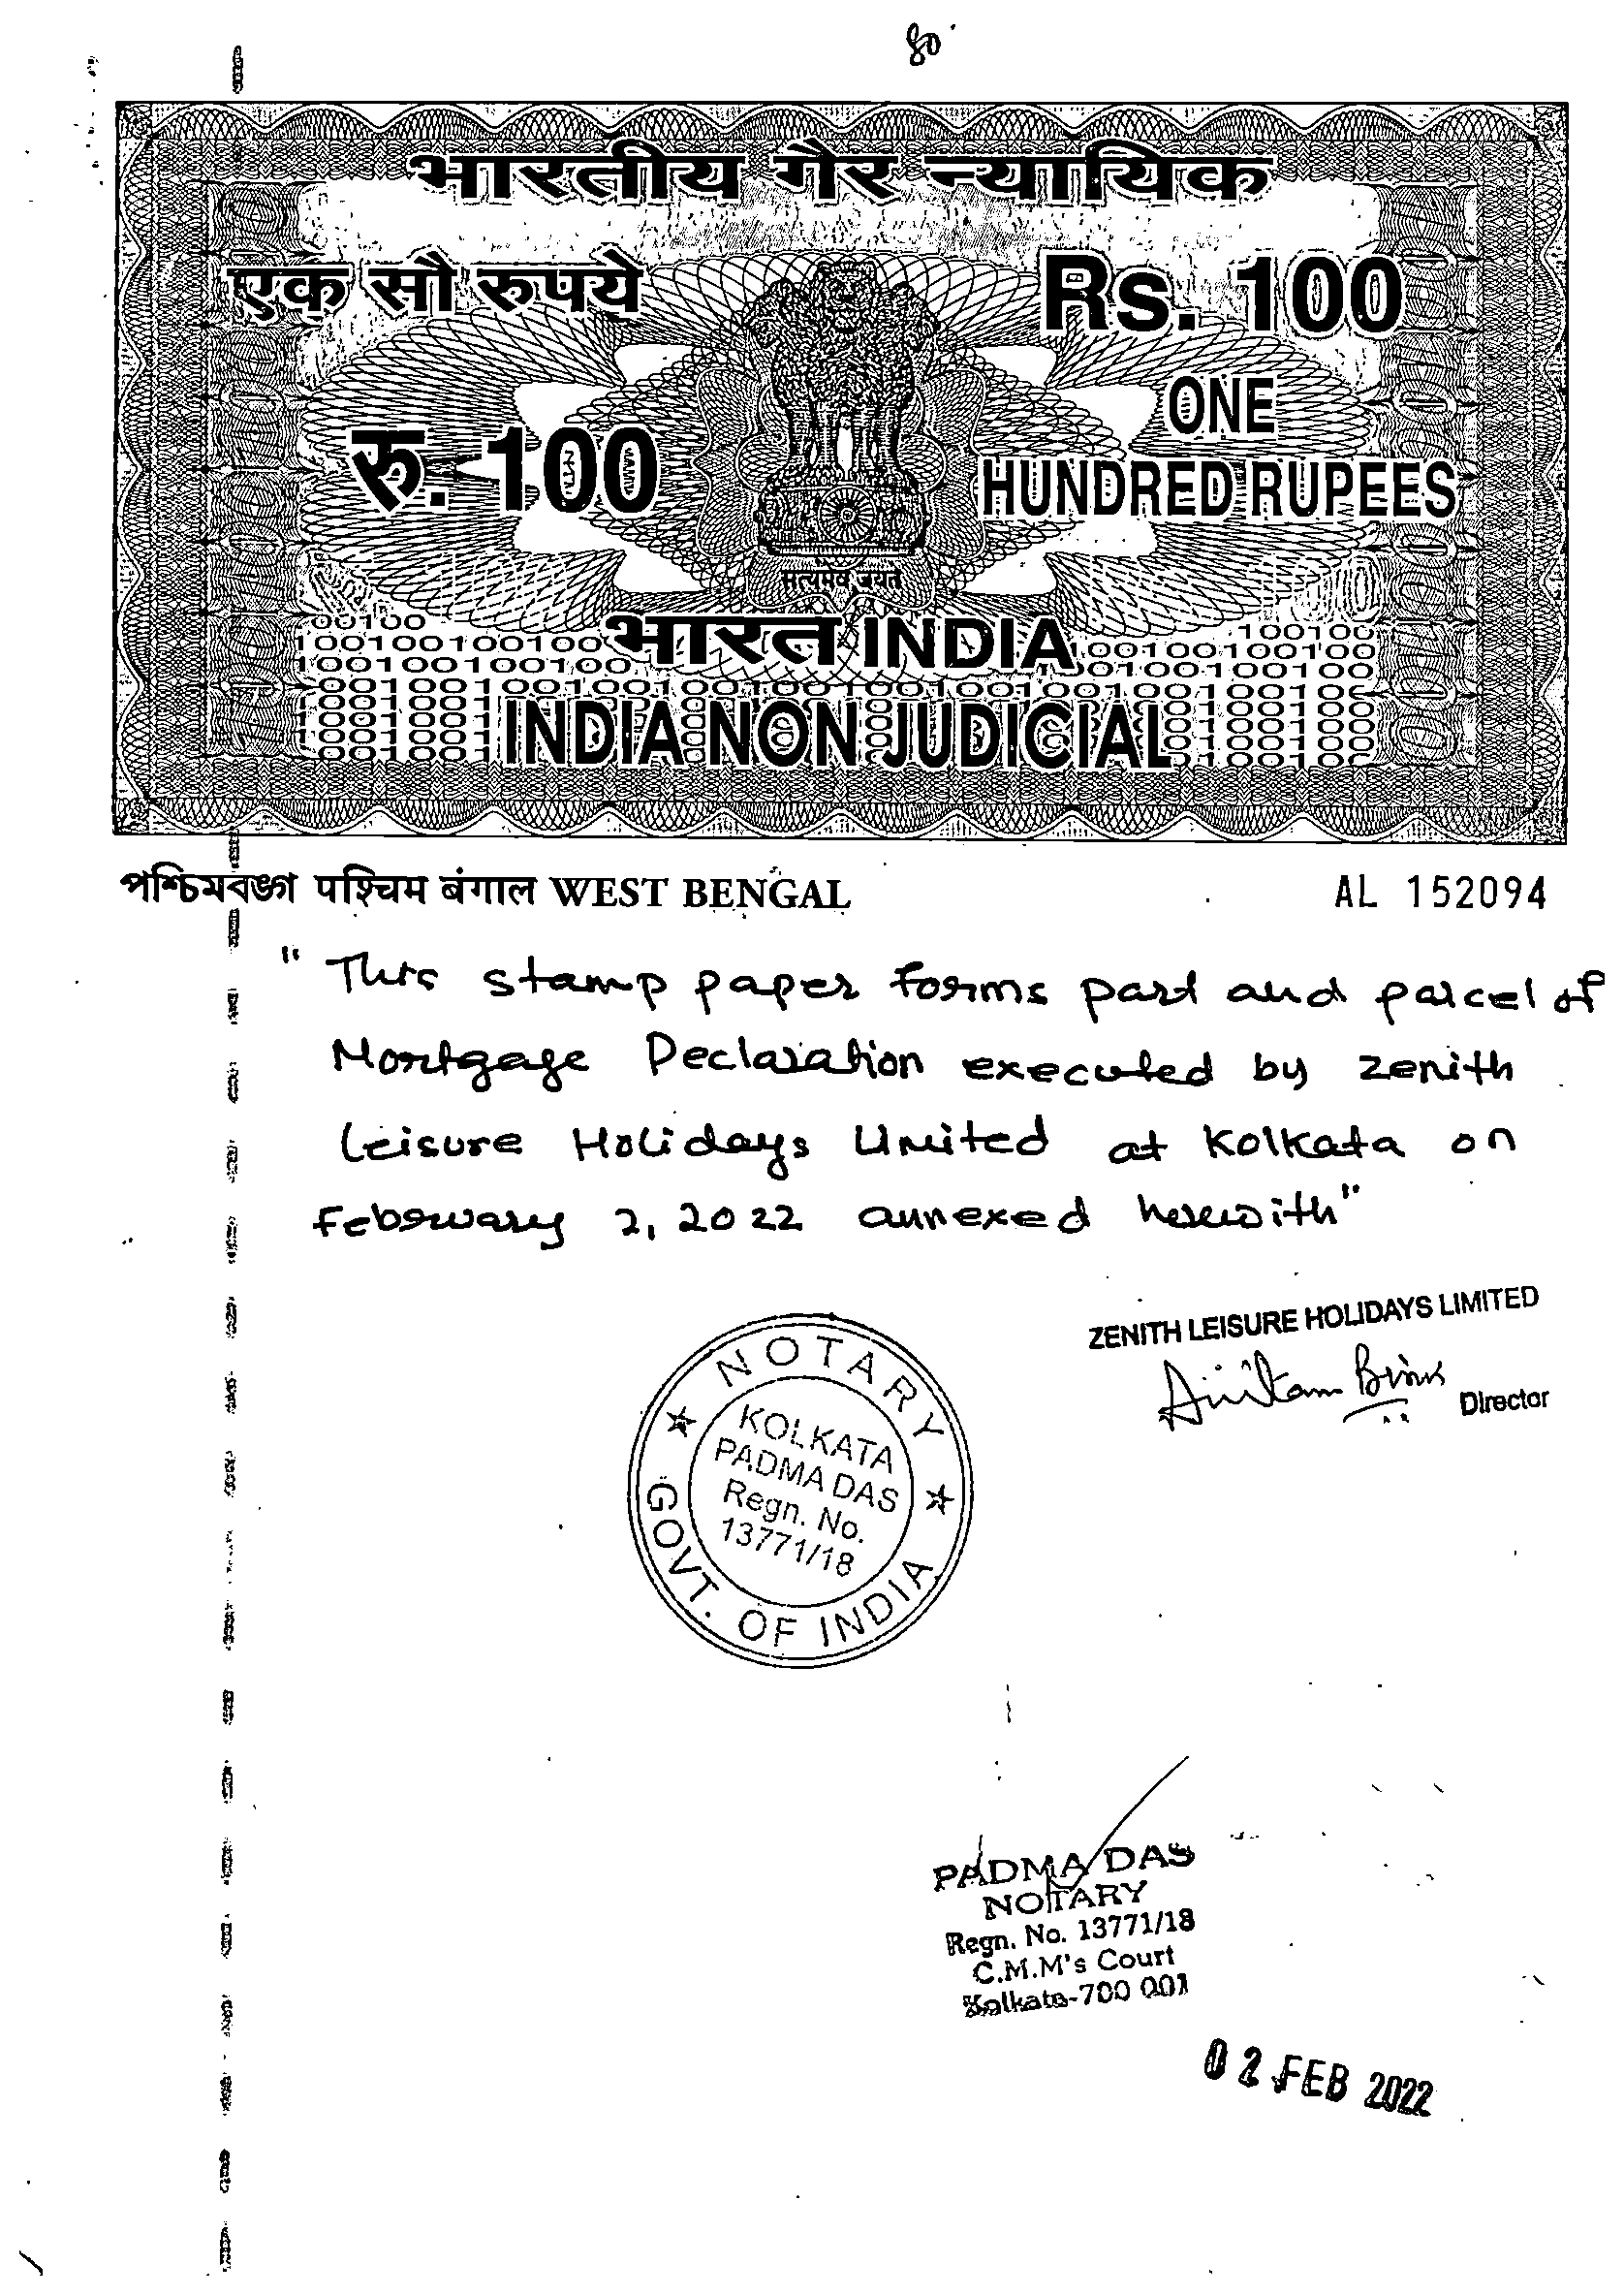 80
भारतीय गैर न्यायिक
एक सौ रुपये
Rs. 100
रु. 100
ONE
HUNDRED RUPEES
सत्यमेव जयते
भारत INDIA
INDIA NON JUDICIAL
পশ্চিমবঙ্গ पश्चिम बंगाल WEST BENGAL
AL 152094
"This stamp paper forms part and parcel of
Mortgage Declaration executed by Zenith
Leisure Holidays Limited at Kolkata on
February 2, 2022 annexed herewith"
ZENITH LEISURE HOLIDAYS LIMITED
Director
NOTARY
KOLKATA
PADMA DAS
Regn. No.
13771/18
GOVT. OF INDIA
PADMA DAS
NOTARY
Regn. No. 13771/18
C.M.M's Court
Kolkata-700 001
02 FEB 2022